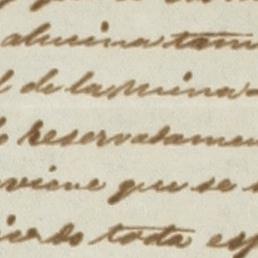 alucina tam
de la mina
reservadamen
viene que se
toda esp